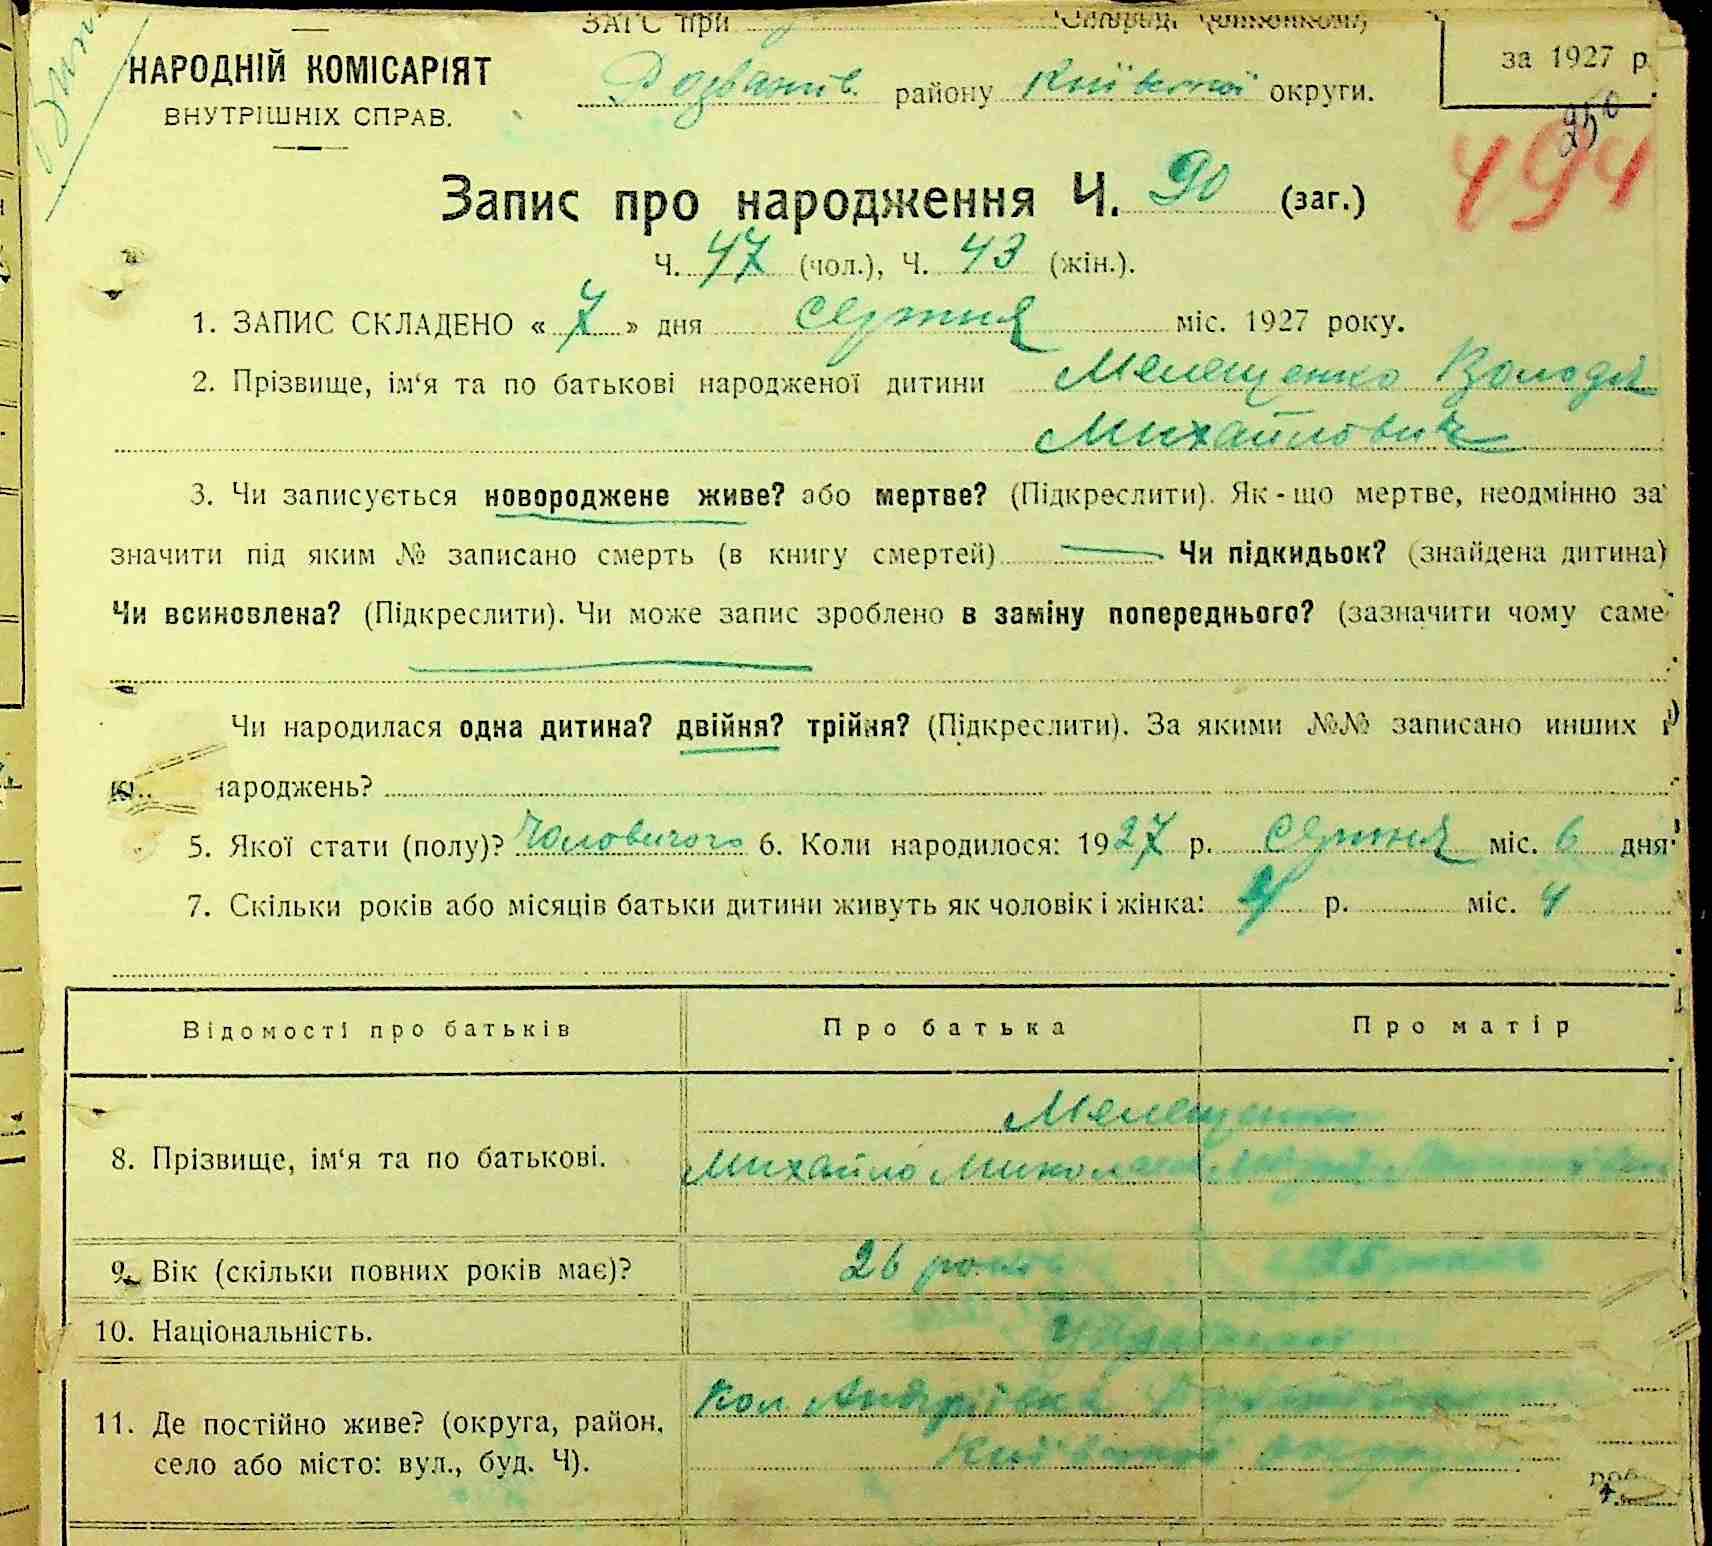 ЗАГС при
за 1927 р.
НАРОДНІЙ КОМІСАРІЯТ
ВНУТРІШНІХ СПРАВ.
району Київської округи.
250
494
Запис про народження Ч. 90 (заг.)
Ч. 47 (чол.), Ч. 43 (жін.).
1. ЗАПИС СКЛАДЕНО « 7 » дня серпня міс. 1927 року.
2. Прізвище, ім‘я та по батькові народженої дитини Мелещенко Володи
Михайлович
3. Чи записується новороджене живе? або мертве? (Підкреслити). Як-що мертве, неодмінно за
значити під яким № записано смерть (в книгу смертей) Чи підкидьок? (знайдена дитина)
Чи всиновлена? (Підкреслити). Чи може запис зроблено в заміну попереднього? (зазначити чому саме
Чи народилася одна дитина? двійня? трійня? (Підкреслити). За якими №№ записано инших
народжень?
5. Якої стати (полу)? Чоловичого 6. Коли народилося: 1927 р. Серпня міс. 6 дня
7. Скільки років або місяців батьки дитини живуть як чоловік і жінка: р. міс. 4
Відомості про батьків Про батька Про матір
Мелещенко
8. Прізвище, ім‘я та по батькові. Михайло
9. Вік (скільки повних років має)? 26 років 25 років
10. Національність.
11. Де постійно живе? (округа, район, Кол Андріївка
село або місто: вул., буд. Ч). Київської округи